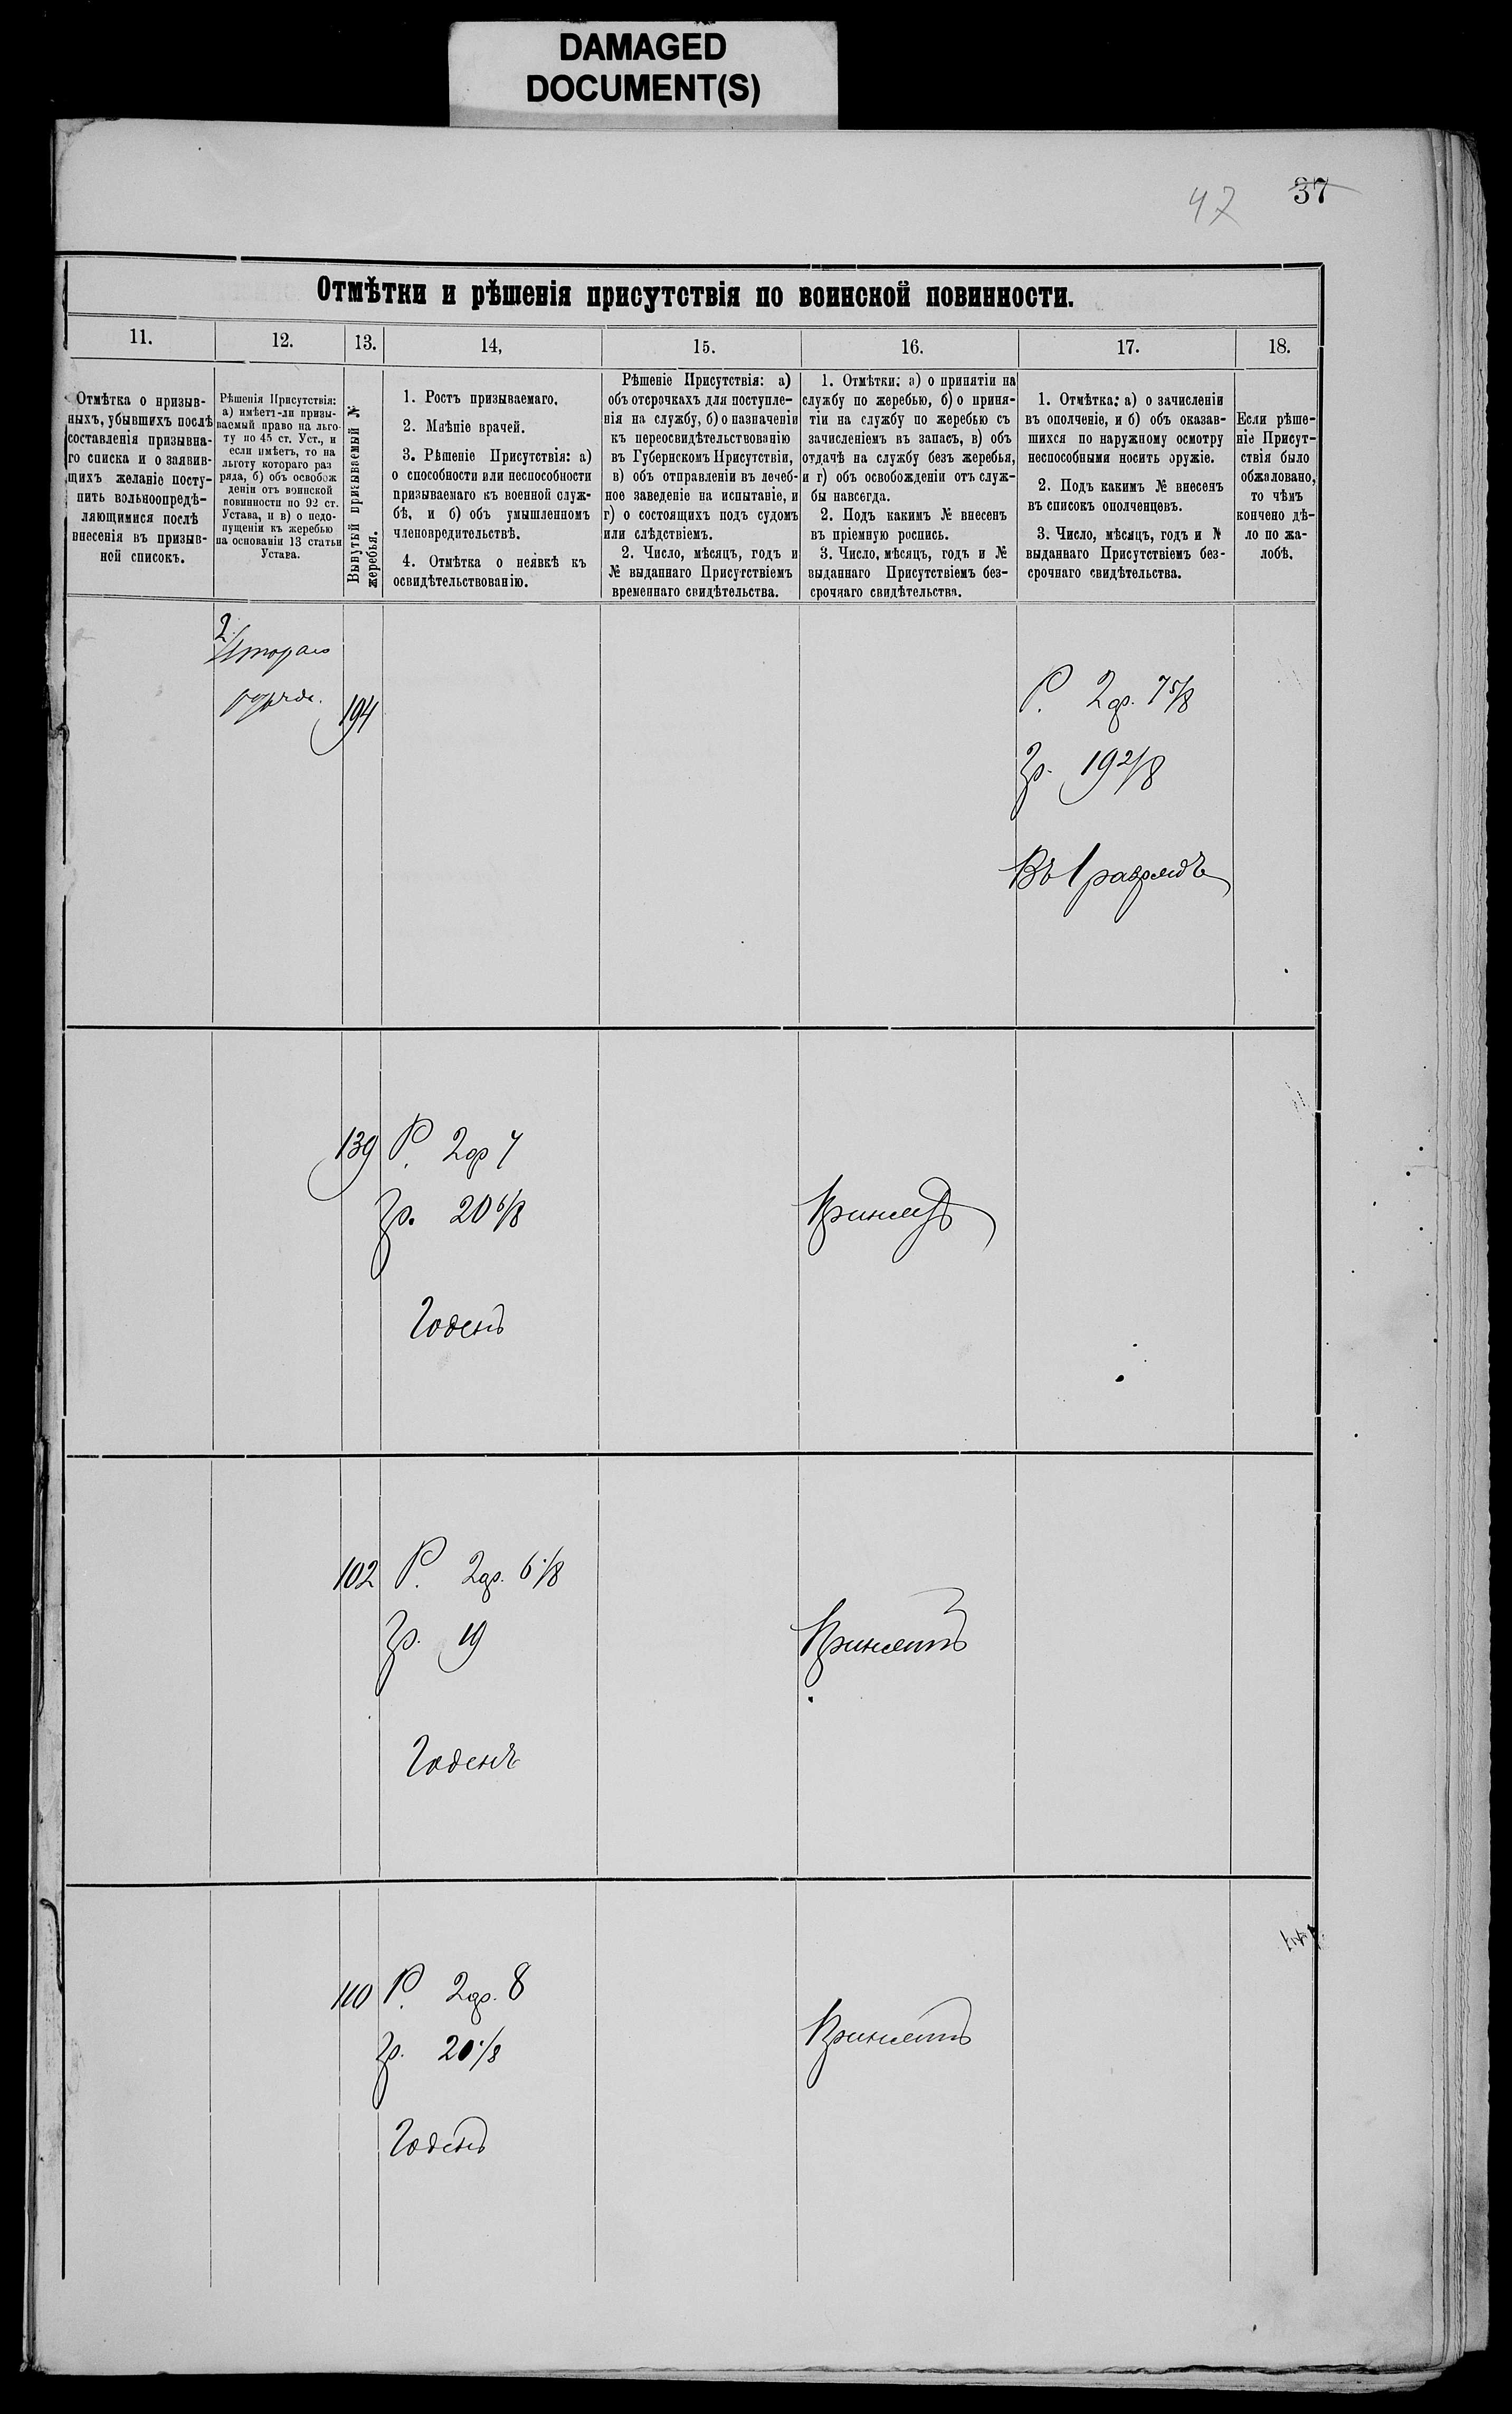 DAMAGED
DOCUMENT(S)
47 37
Отмѣтки и рѣшенія присутствія по воинской повинности.
11. 12. 13. 14, 15. 16. 17. 18.
Отмѣтка о призыв-
ныхъ, убывшихъ послѣ
составленія призывна-
го списка и о заявив-
щихъ желаніе посту-
пить вольноопредѣ-
ляющимися послѣ
внесенія въ призыв-
ной списокъ.
Рѣшенія Присутствія:
а) имѣетъ-ли призы-
ваемый право на льго-
ту по 45 ст. Уст., и
если имѣетъ, то на
льготу котораго раз
ряда, б) объ освобож
деніи отъ воинской
повинности по 92 ст.
Устава, и в) о недо-
пущеніи къ жеребью
на основаніи 13 статьи
Устава.
Вынутый призываемый №
жеребья.
1. Ростъ призываемаго.
2. Мнѣніе врачей.
3. Рѣшеніе Присутствія: а)
о способности или неспособности
призываемаго къ военной служ-
бѣ, и б) объ умышленномъ
членовредительствѣ.
4. Отмѣтка о неявкѣ къ
освидѣтельствованію.
Рѣшеніе Присутствія: а)
объ отсрочкахъ для поступле-
нія на службу, б) о назначеніи
къ переосвидѣтельствованію
въ Губернскомъ Присутствіи,
в) объ отправленіи въ лечеб-
ное заведеніе на испытаніе, и
г) о состоящихъ подъ судомъ
или слѣдствіемъ.
2. Число, мѣсяцъ, годъ и
№ выданнаго Присутствіемъ
временнаго свидѣтельства.
1. Отмѣтки: а) о принятіи на
службу по жеребью, б) о приня-
тіи на службу по жеребью съ
зачисленіемъ въ запасъ, в) объ
отдачѣ на службу безъ жеребья,
и г) объ освобожденіи отъ служ-
бы навсегда.
2. Подъ какимъ № внесенъ
въ пріемную роспись.
3. Число, мѣсяцъ, годъ и №
выданнаго Присутствіемъ без-
срочнаго свидѣтельства.
1. Отмѣтка: а) о зачисленіи
въ ополченіе, и б) объ оказав-
шихся по наружному осмотру
неспособными носить оружіе.
2. Подъ какимъ № внесенъ
въ списокъ ополченцевъ.
3. Число, мѣсяцъ, годъ и №
выданнаго Присутствіемъ без-
срочнаго свидѣтельства.
Если рѣше-
ніе Присут-
ствія было
обжаловано,
то чѣмъ
кончено дѣ-
ло по жа-
лобѣ.
2
Втораго
194
Р. 2ар. 7 5/8
Гр. 19 2/8
Въ 1 разрядъ
139 Р. 2ар 7
Гр. 20 6/8
Годенъ
Принятъ
102 Р. 2ар. 6 1/8
Гр. 19
Годенъ
Принятъ
110 Р. 2ар. 8
Гр. 20 1/8
Годенъ
Принятъ